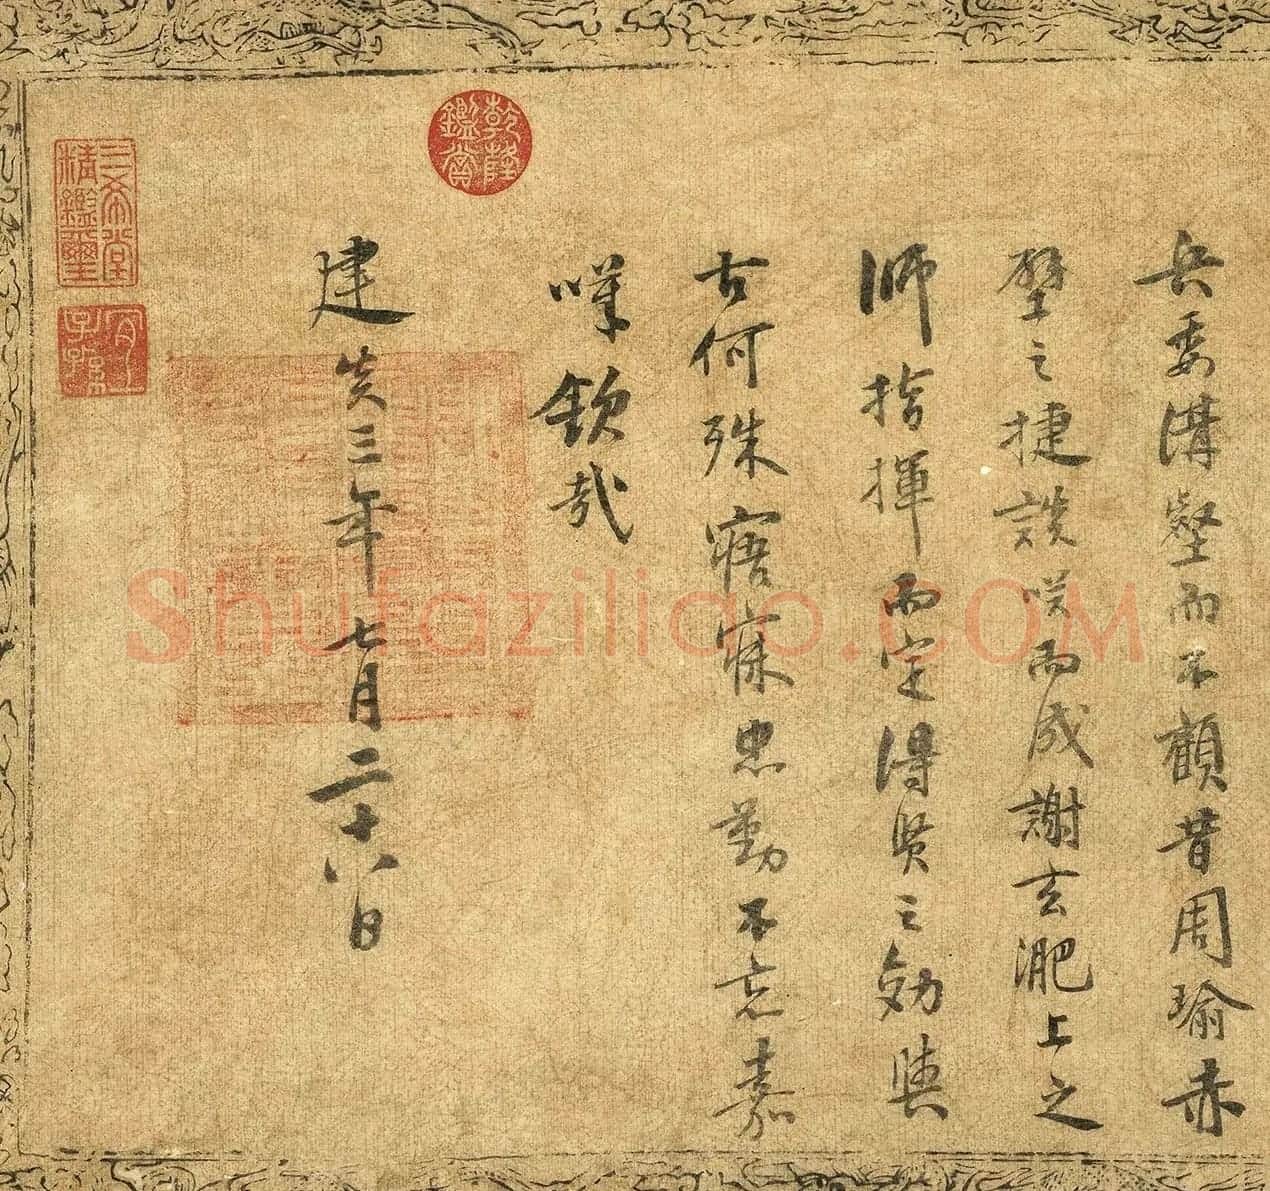 兵委溝壑而不顧昔周瑜赤
壁之捷談咲而成謝玄淝上之
師指揮而定得賢之効與
古何殊寤寐忠勤不忘嘉
嘆欽哉
建炎三年七月二十八日
乾隆鑑賞
三希堂精鑑璽
宜子孫
Shufaziliao.COM